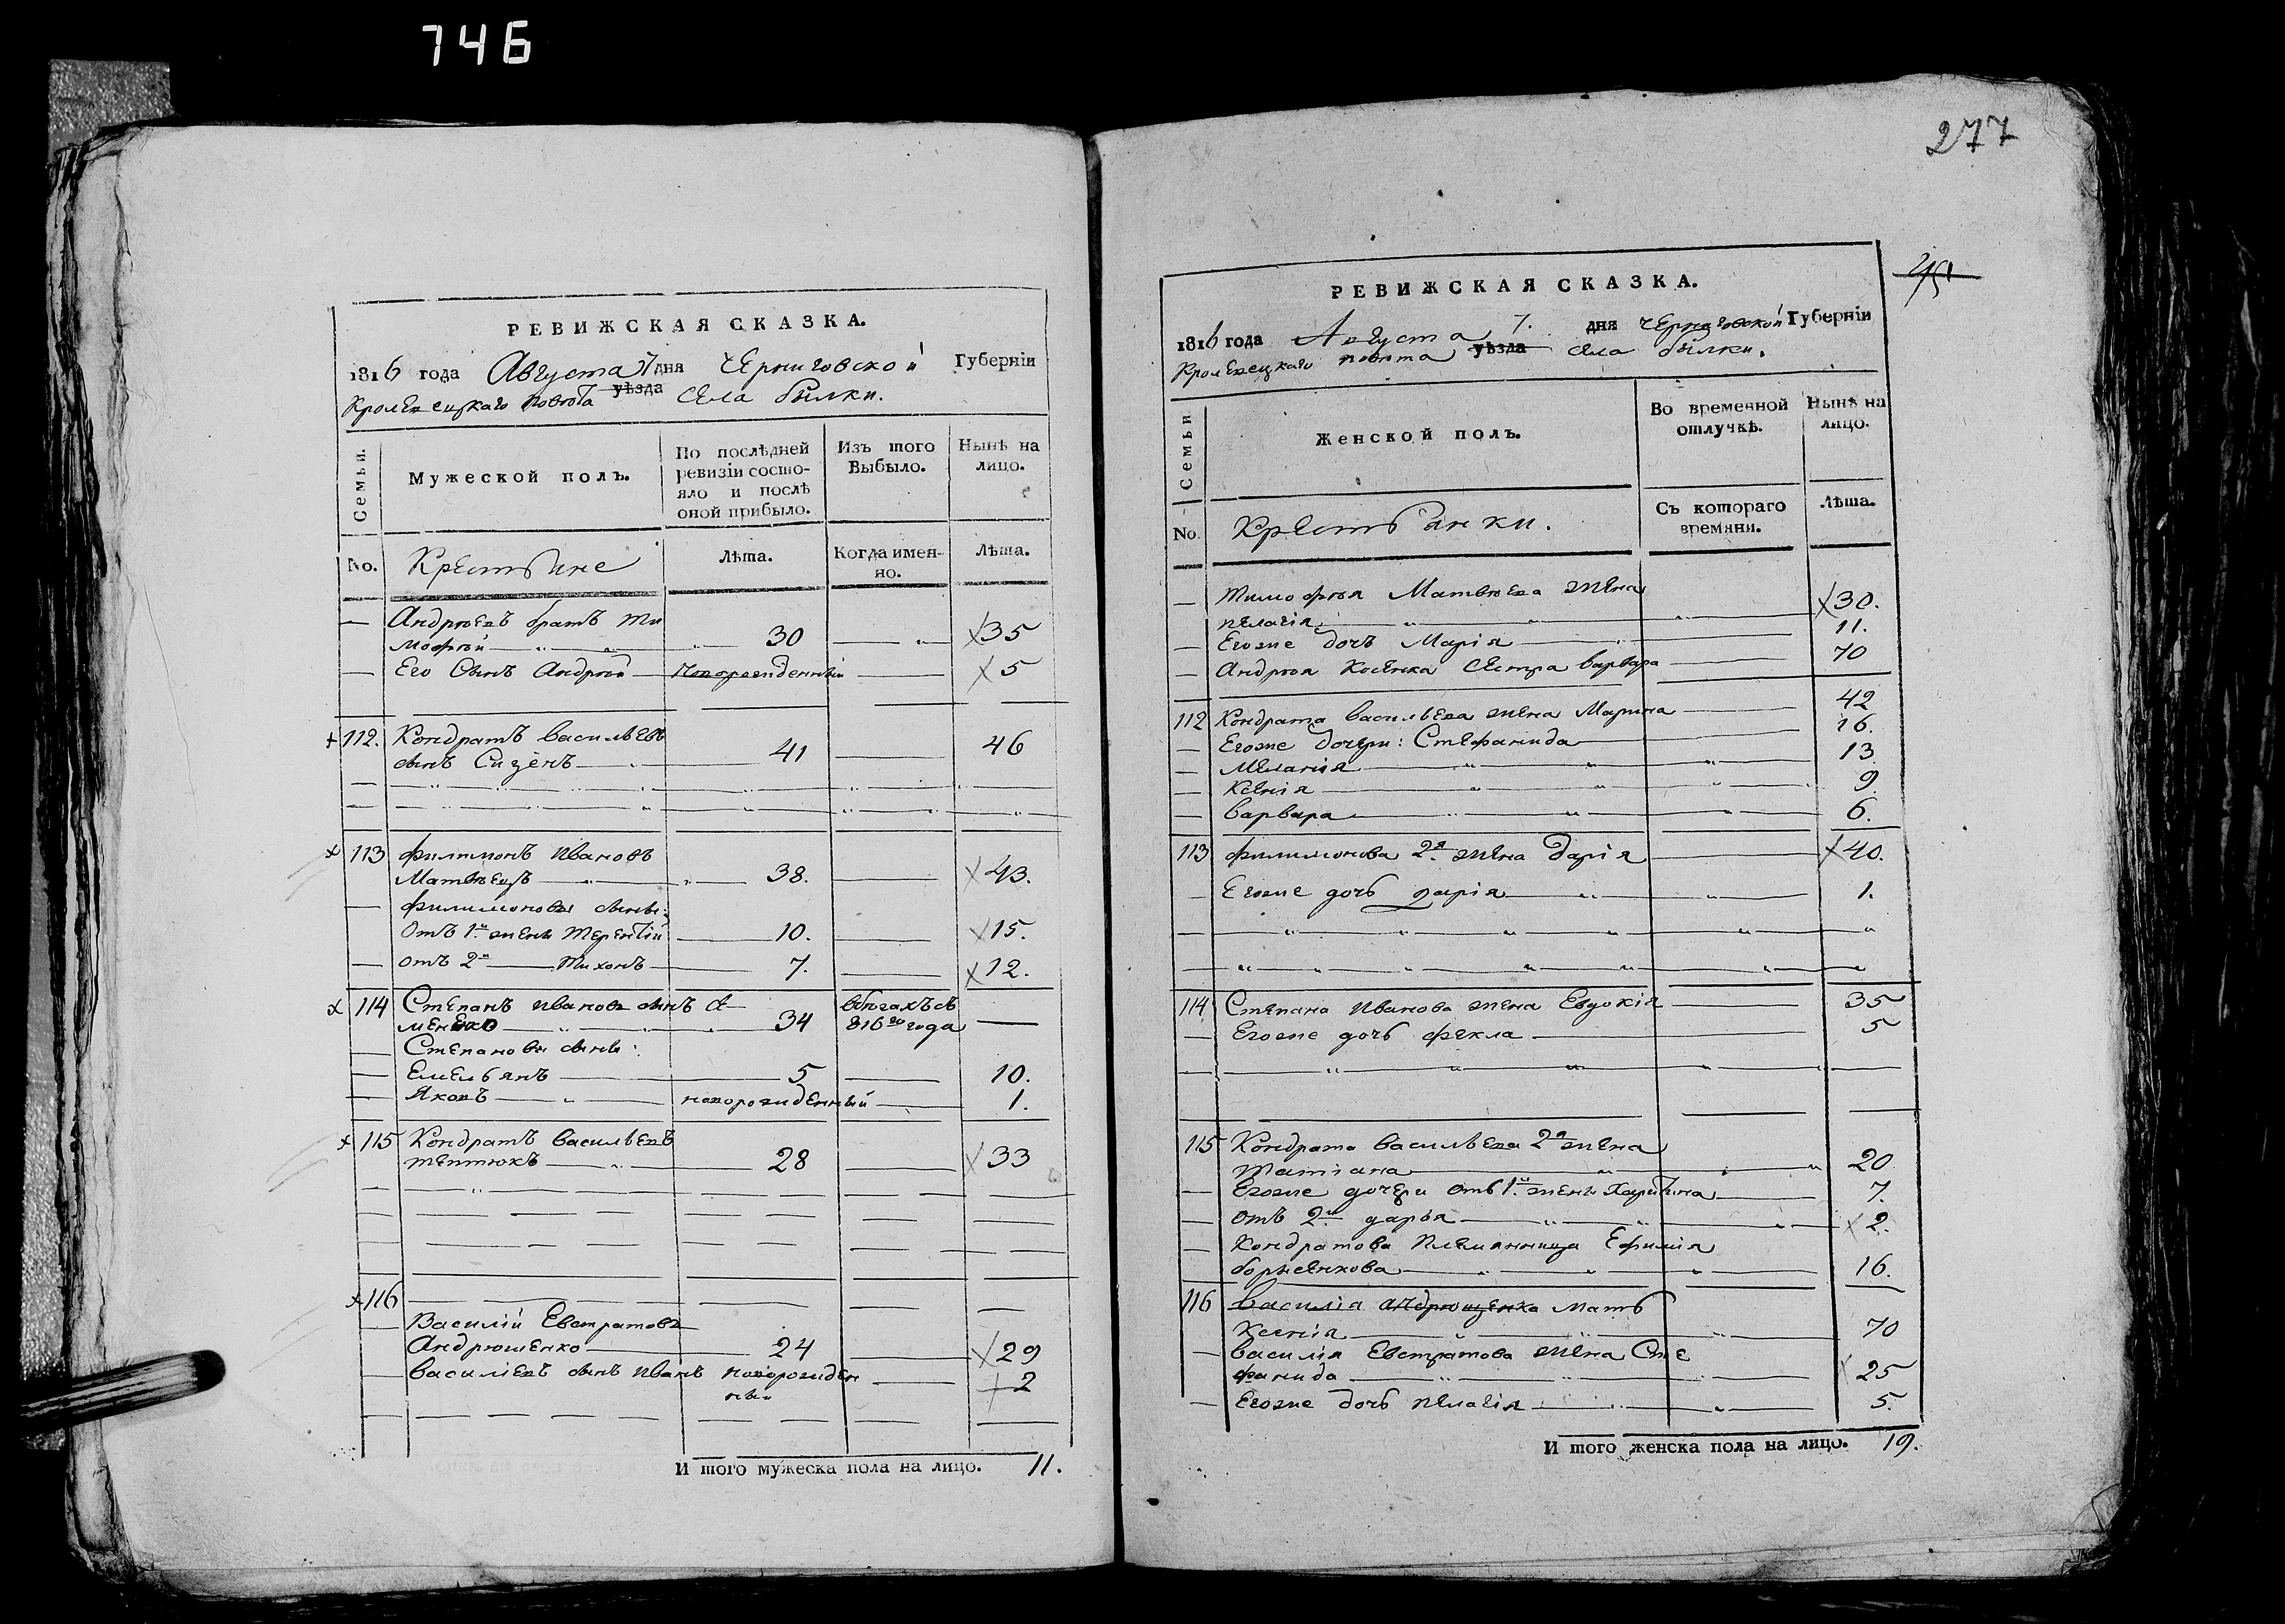 746
РЕВИЖСКАЯ СКАЗКА.
1816 года Августа 7 дня Черниговской Губерніи
Кролевецкаго повѣта уѣзда Села былки.
Семьи.
Мужеской полъ.
По послѣдней ревизіи состояло и послѣ оной прибыло.
Изъ того Выбыло.
Нынѣ на лицо.
No. Крестьяне
Лѣта.
Когда именно.
Лѣта.
Андрѣевъ братъ Ти
мофѣй 30 35
Его Сынъ Андрѣй новорожденный 5
112. Кондратъ Васильевъ
сынъ 41 46
113 Филимонъ Ивановъ
Матвѣецъ 38. 43.
Филимоновы сыны:
Отъ 1й жены Терентій 10. 15.
отъ 2й Тихонъ 7. 12.
114 Степанъ Ивановъ сынъ Се въ бѣгахъ съ
менько 34 816го года
Степановы сыны:
Емельянъ 5 10.
Яковъ новорожденный 1.
115 Кондратъ Васильевъ
28 33
116
Василій Евстратовъ
Андрюшенко 24 29
Василіевъ сынъ Иванъ новорожден
ный 2
И того мужеска пола на лицо. 11.
277
РЕВИЖСКАЯ СКАЗКА.
1816 года Августа 7. дня Черниговской Губерніи
Кролевецкаго повѣта уѣзда Села былки.
Семьи
Женской полъ.
Во временной отлучкѣ.
Нынѣ на лицо.
No. Крестьянки.
Съ котораго времяни.
Лѣта.
Тимофѣя Матвѣева жена
Пелагія 30.
Егоже дочь Марія 11.
Андрѣя Косенка сестра Варвара 70
112 Кондрата Васильева жена Марина 42
Егоже дочери: Стефанида 16.
Меланія 13
Ксенія 9.
Варвара 6.
113 Филимонова 2я жена Дарія 40.
Егоже дочь Дарія 1.
114 Степана Иванова жена Евдокія 35
Егоже дочь Фекла 5
115 Кондрата Васильева 2я жена
Татіана 20
Егоже дочери отъ 1й жены Харитина 7.
отъ 2й дарья 2.
Кондратова племянница Ефимія
16.
116 Василія Андрющенка мать
Ксенія 70
Василія Евстратова жена Сте
фанида 25
Егоже дочь Пелагія 5.
И того женска пола на лицо. 19.